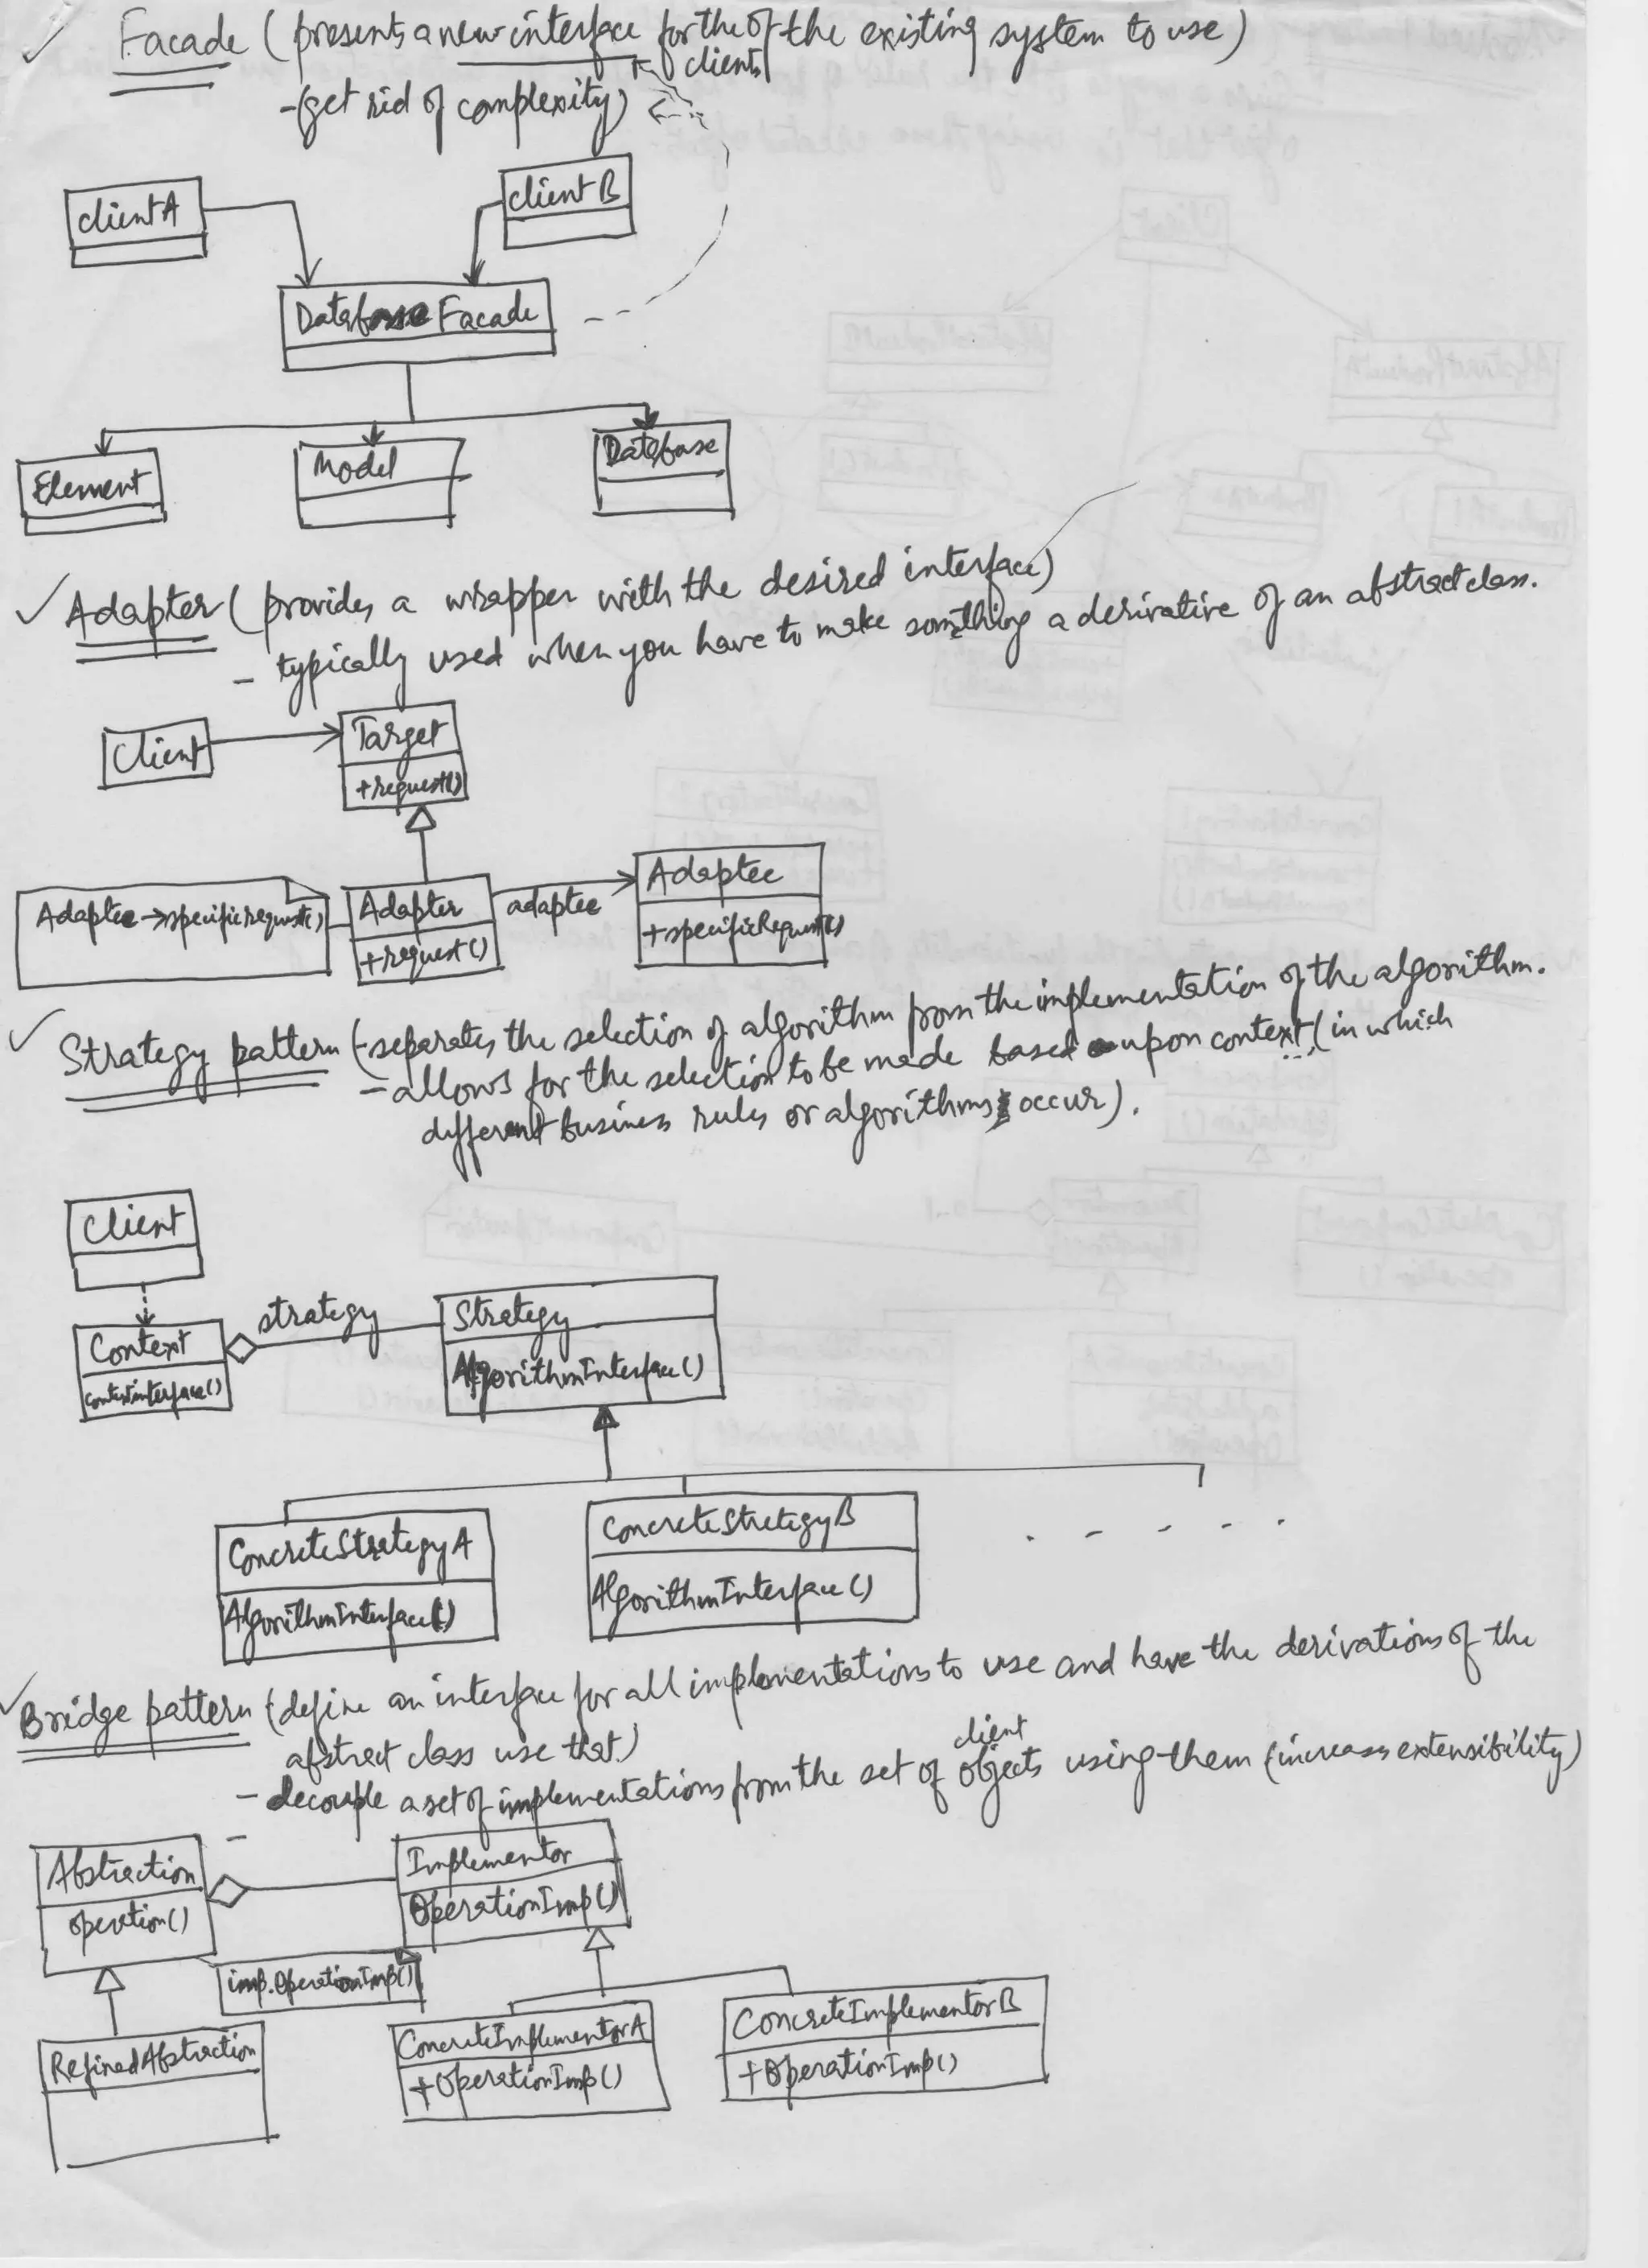 Facade (presents a new interface for the of the existing system to use)
clients
- (get rid of complexity)
clientA
clientB
Database Facade
Element
Model
Database
Adapter (provides a wrapper with the desired interface)
- typically used when you have to make something a derivative of an abstract class.
Client
Target
+request()
Adaptee→specificrequest()
Adapter
+request()
adaptee
Adaptee
+specificRequest()
Strategy pattern (-separates the selection of algorithm from the implementation of the algorithm.
- allows for the selection to be made based upon context (in which
different business rules or algorithms occur).
Client
Context
contextinterface()
strategy
Strategy
AlgorithmInterface()
ConcreteStrategyA
AlgorithmInterface()
ConcreteStrategyB
AlgorithmInterface()
Bridge pattern (define an interface for all implementations to use and have the derivations of the
abstract class use that.)
client
- decouple a set of implementations from the set of objects using them (increases extensibility)
Abstraction
operation()
Implementor
OperationImp()
imp.OperationImp()
RefinedAbstraction
ConcreteImplementorA
+OperationImp()
ConcreteImplementorB
+OperationImp()